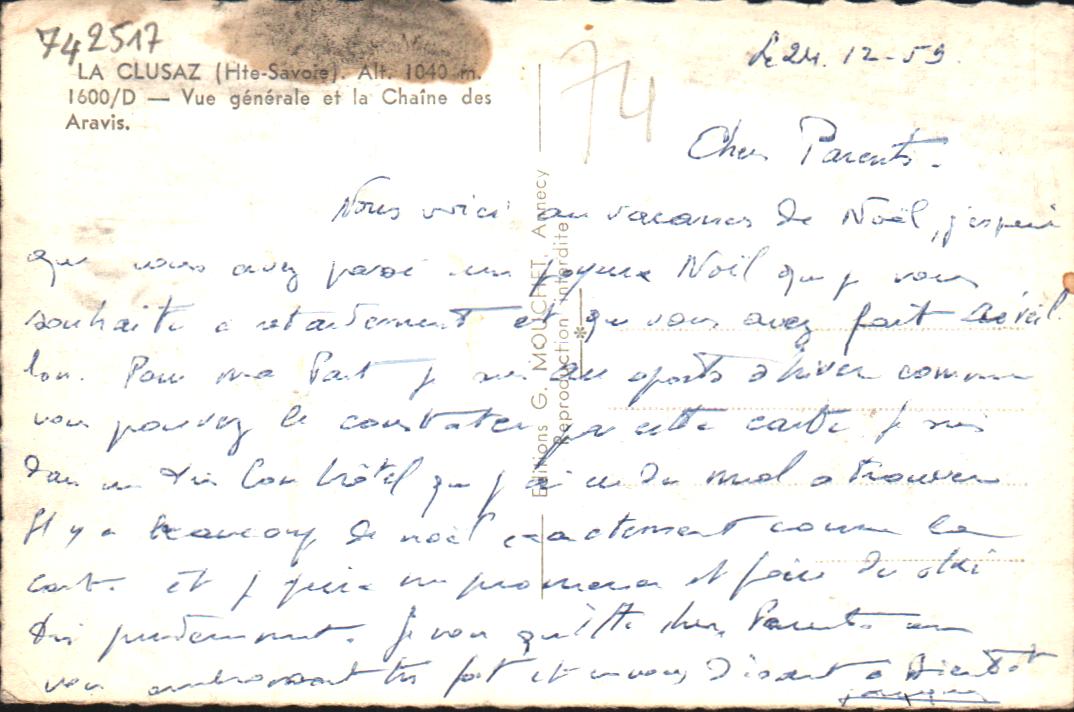 742517
LA CLUSAZ (Hte-Savoie). Alt. 1040 m.
1600/D — Vue générale et la Chaîne des
Aravis.
74
Le 24.12-59.
Chers Parents.
Nous voici au vacances de Noël, j'espère
que vous avez passé un joyeux Noël que je vous
souhaite a retardement et que vous avez fait
lon. Pour ma Part je suis au sports d'hiver comme
vous pouvez le constater par cette carte je suis
dans un très bon hôtel que j'ai eu du mal a trouver
Il y a beaucoup de noël exactement comme la
carte et je me promener et faire du ski
très prudemment. Je vous quitte chers Parents en
vous embrassant très fort et en vous disant a Bientôt
Editions G. MOUCHET, Annecy
Reproduction interdite